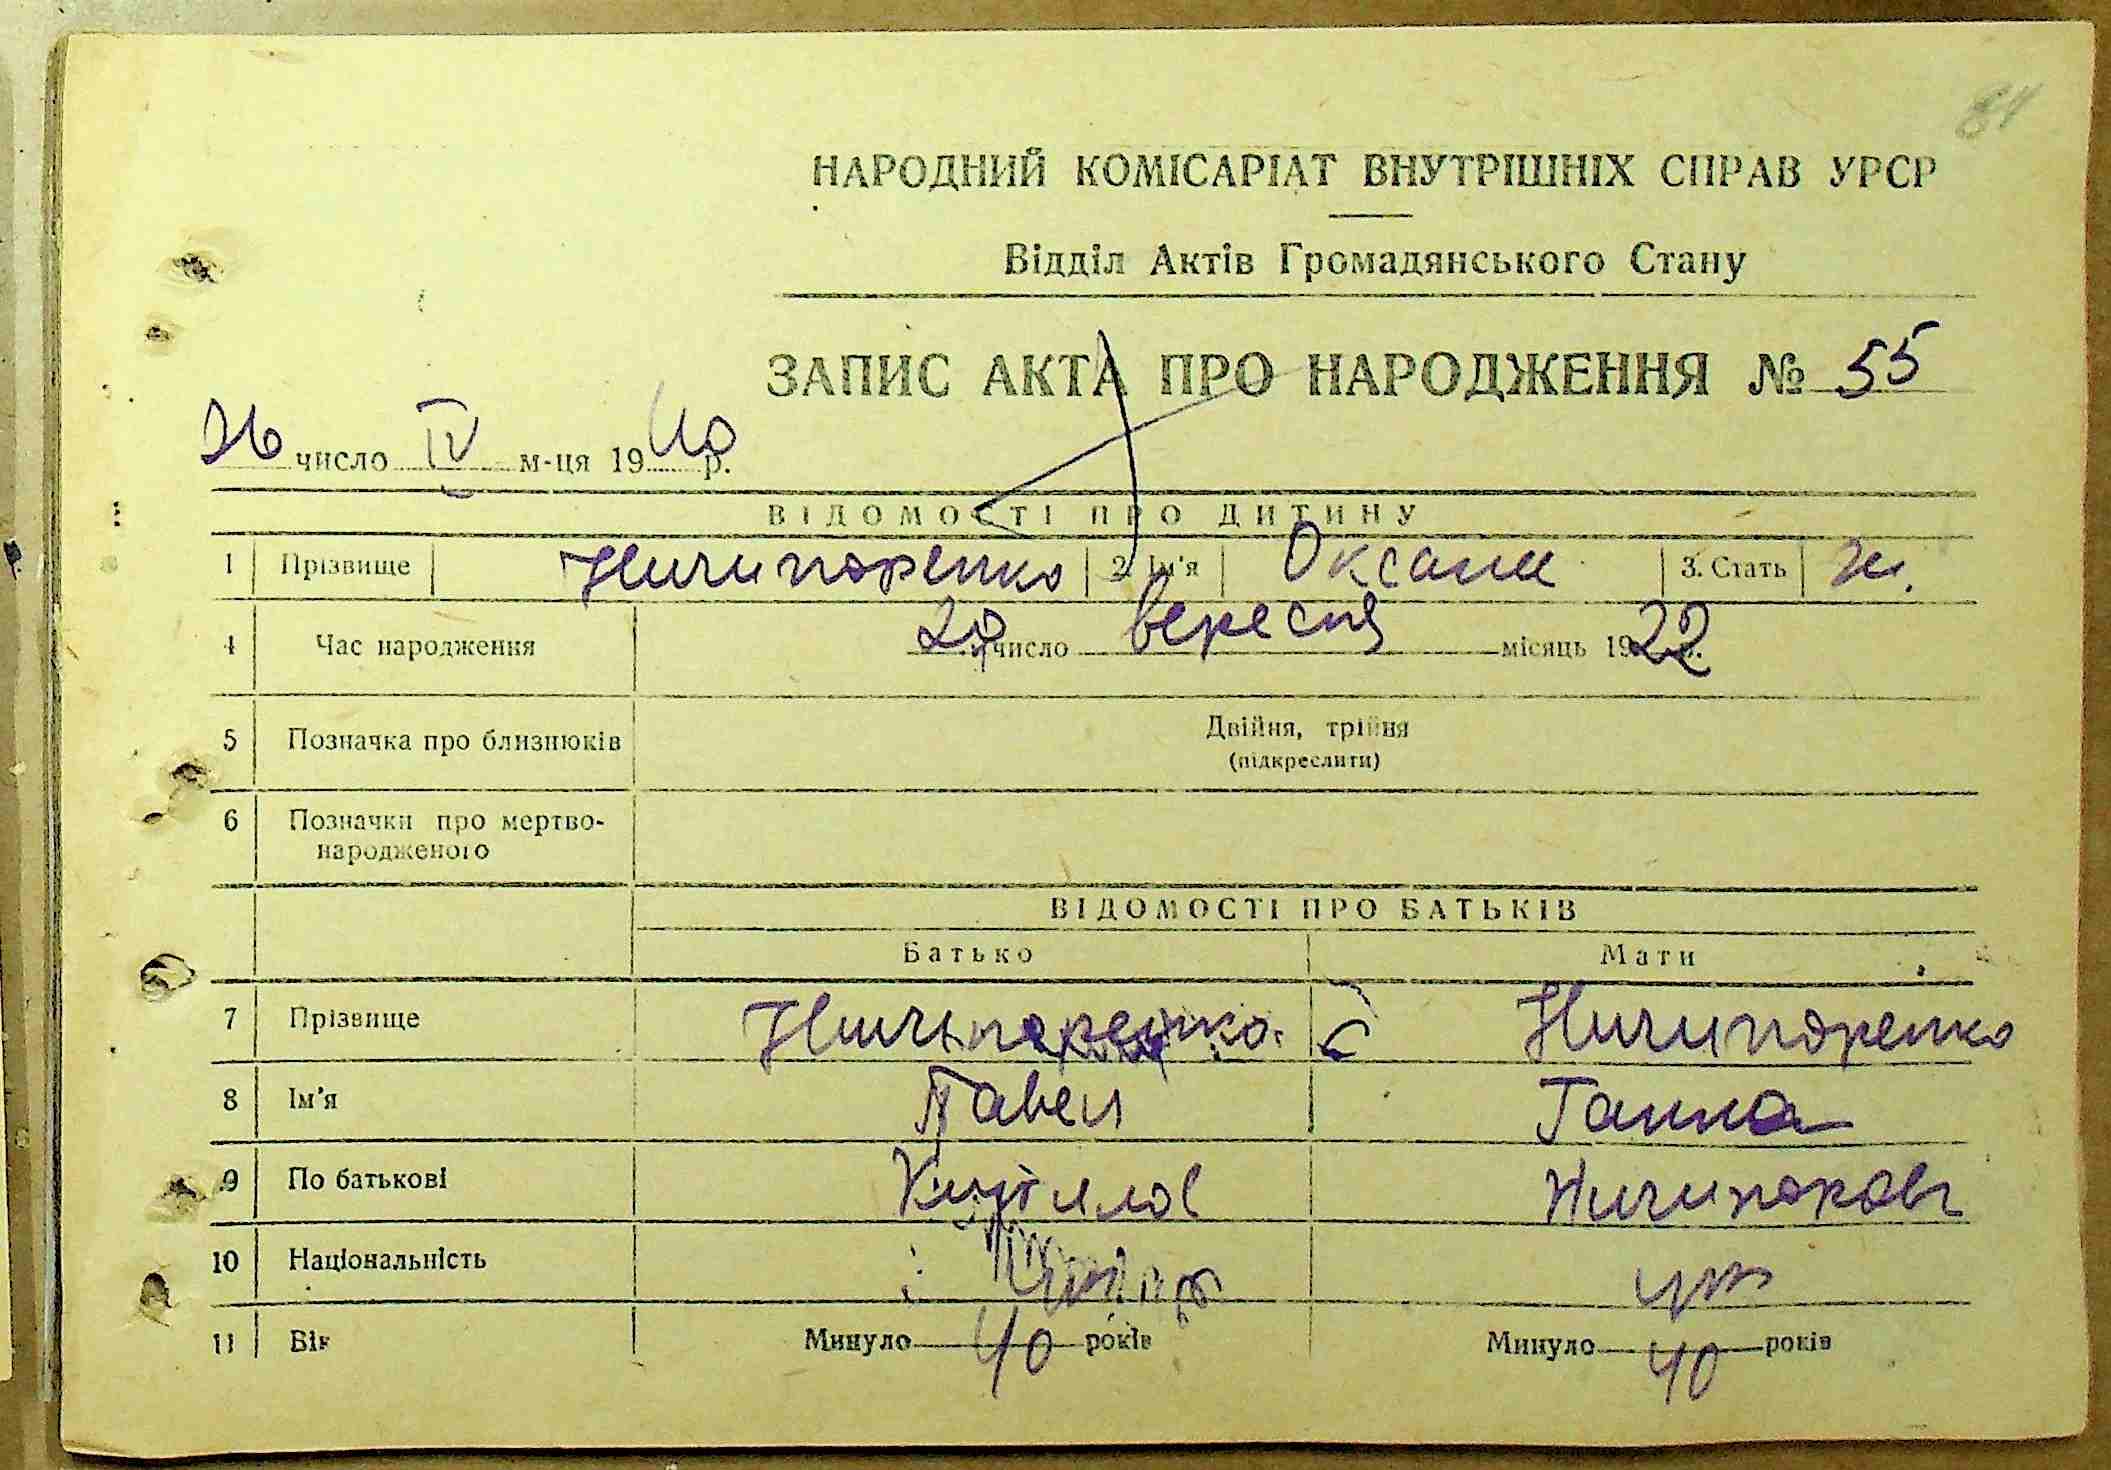 84
НАРОДНИЙ КОМІСАРІАТ ВНУТРІШНІХ СПРАВ УРСР
Відділ Актів Громадянського Стану
ЗАПИС АКТА ПРО НАРОДЖЕННЯ № 55
26 число IV м-ця 1940 р.
ВІДОМОСТІ ПРО ДИТИНУ
1 Прізвище Ничипоренко 2. Ім'я Оксана 3. Стать ж.
4 Час народження число вересня місяць 1922 р.
5 Позначка про близнюків Двійня, трійня
(підкреслити)
6 Позначки про мертво-
народженого
ВІДОМОСТІ ПРО БАТЬКІВ
Батько Мати
7 Прізвище Ничипоренко Ничипоренко
8 Ім'я Павел Ганна
9 По батькові Кирилов Ничипоровн
10 Національність укр
11 Вік Минуло 40 років Минуло 40 років